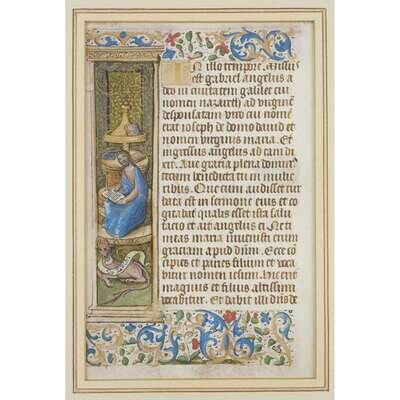 In illo tempore. Missus
est gabriel angelus a
deo in civitatem galilee cui
nomen nazareth ad virginē
desponsatam viro cui nomē
erat ioseph de domo david et
nomen virginis maria. Et
ingressus angelus ad eam di
xit. Aue gratia plena domin᷒
tecum benedicta tu in mulie
ribus. Que cum audisset tur
bata est in sermone eius et co
gitabat qualis esset ista salu
tacio et ait angelus ei Ne ti
meas maria invenisti enim
graciam apud dūm. Ecce co
cipies et paries filium et voca
bitur nomen iesum. hic erit
magnus et filius altissimi
vocabitur. Et dabit illi dn̄s de